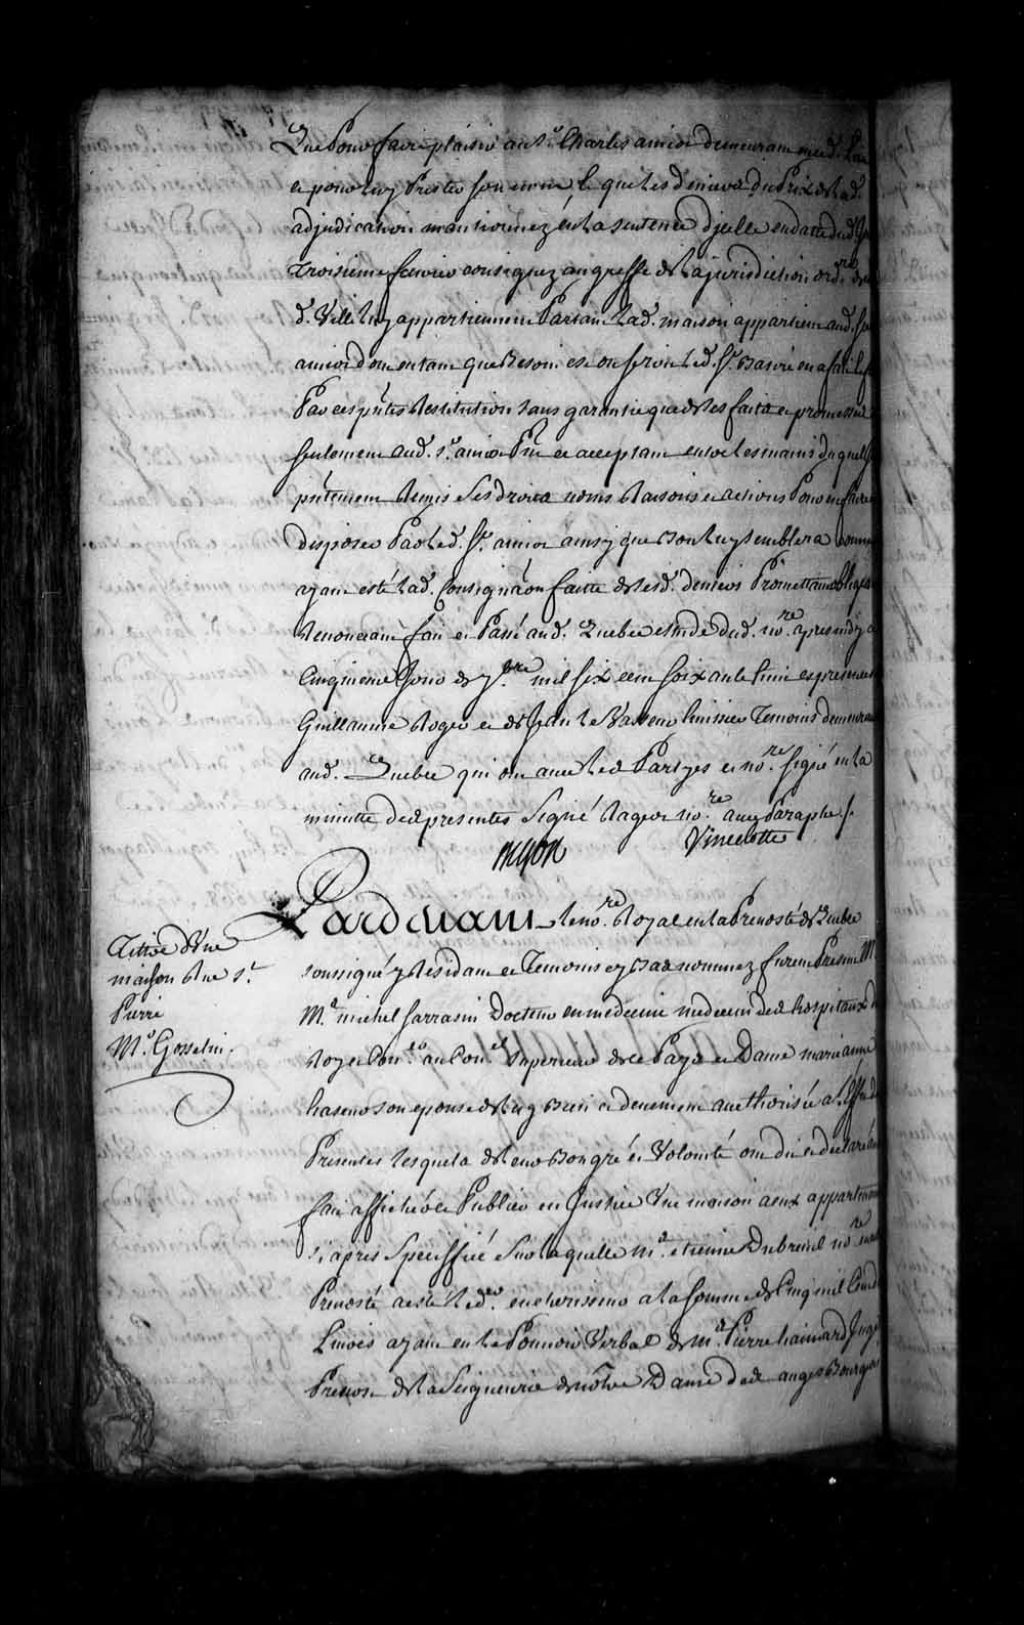 Que Pour faire plaisir au Sr. Charles amiot demeurant
et pour luy Prester son nom que les deniers du Prix de lad.
adjudication mantionnez en la sentence d'jcelle en datte dud. jour
troisieme feuvrier consignez au greffe de la jurisdiction ordre de
d. Ville luy appartiennent Partant lad. maison appartient aud. Sr
amiot dont en tant que Besoin est ou seroit led. Sr. Basire en a fait
Par ces pñtes Restitution sans garantie que de ses faits et promesses
seulement aud. Sr. amiot Pñt et acceptant es mains duquel
pñtement Remis ses droits noms Raisons et actions Pour en faire
disposer Par led. Sr. amiot ainsy que Bon luy semblera comme
ayant esté lad. Consignãon faitte desd. deniers Promettant obligeant
Renonceant fait et Passé aud. Quebec estude dud. nore. apres midy
Cinqieme jour de 7bre mil six cent soixante huit es presences
Guillaume Roger et de Jean le Vasseur huissier Temoins demeurans
aud. Quebec qui ont avec led Partyes et nore. signé en la
minutte des presentes Signé Rageot nore. avec Paraphe /.
Vincelotte
Pardevant le nore. Royal en la Prevosté de Quebec
Tittre d'Une
maison Rue St.
Pierre
Mr. Gosselin.
soussigné y Residant et Temoins cy Bas nommez furent Presens
Me. michel sarrasin Docteur en medecine medecin des hospitaux du
Roy et Coner. au Conel. superieur de ce Pays et Dame marie anne
hazeur son epouse de luy Bien et deuement aucthorisée a l'effet des
Presentes lesquels de leur Bon gré et Volonté ont dit et declaré avoir
fait afficher et Publier en Justice Une maison a eux appartenante
cy apres Speciffiée sur laquelle Me. etienne Dubreuil nore.
Prevosté a esté le der. encherisseur a la somme de Cinq mil Cent
Livres ayant eu le Pouvoir Verbal de Me. Pierre haimard Juge
Prevost de la Seigneurie de nôtre Dame des anges Bourgeois